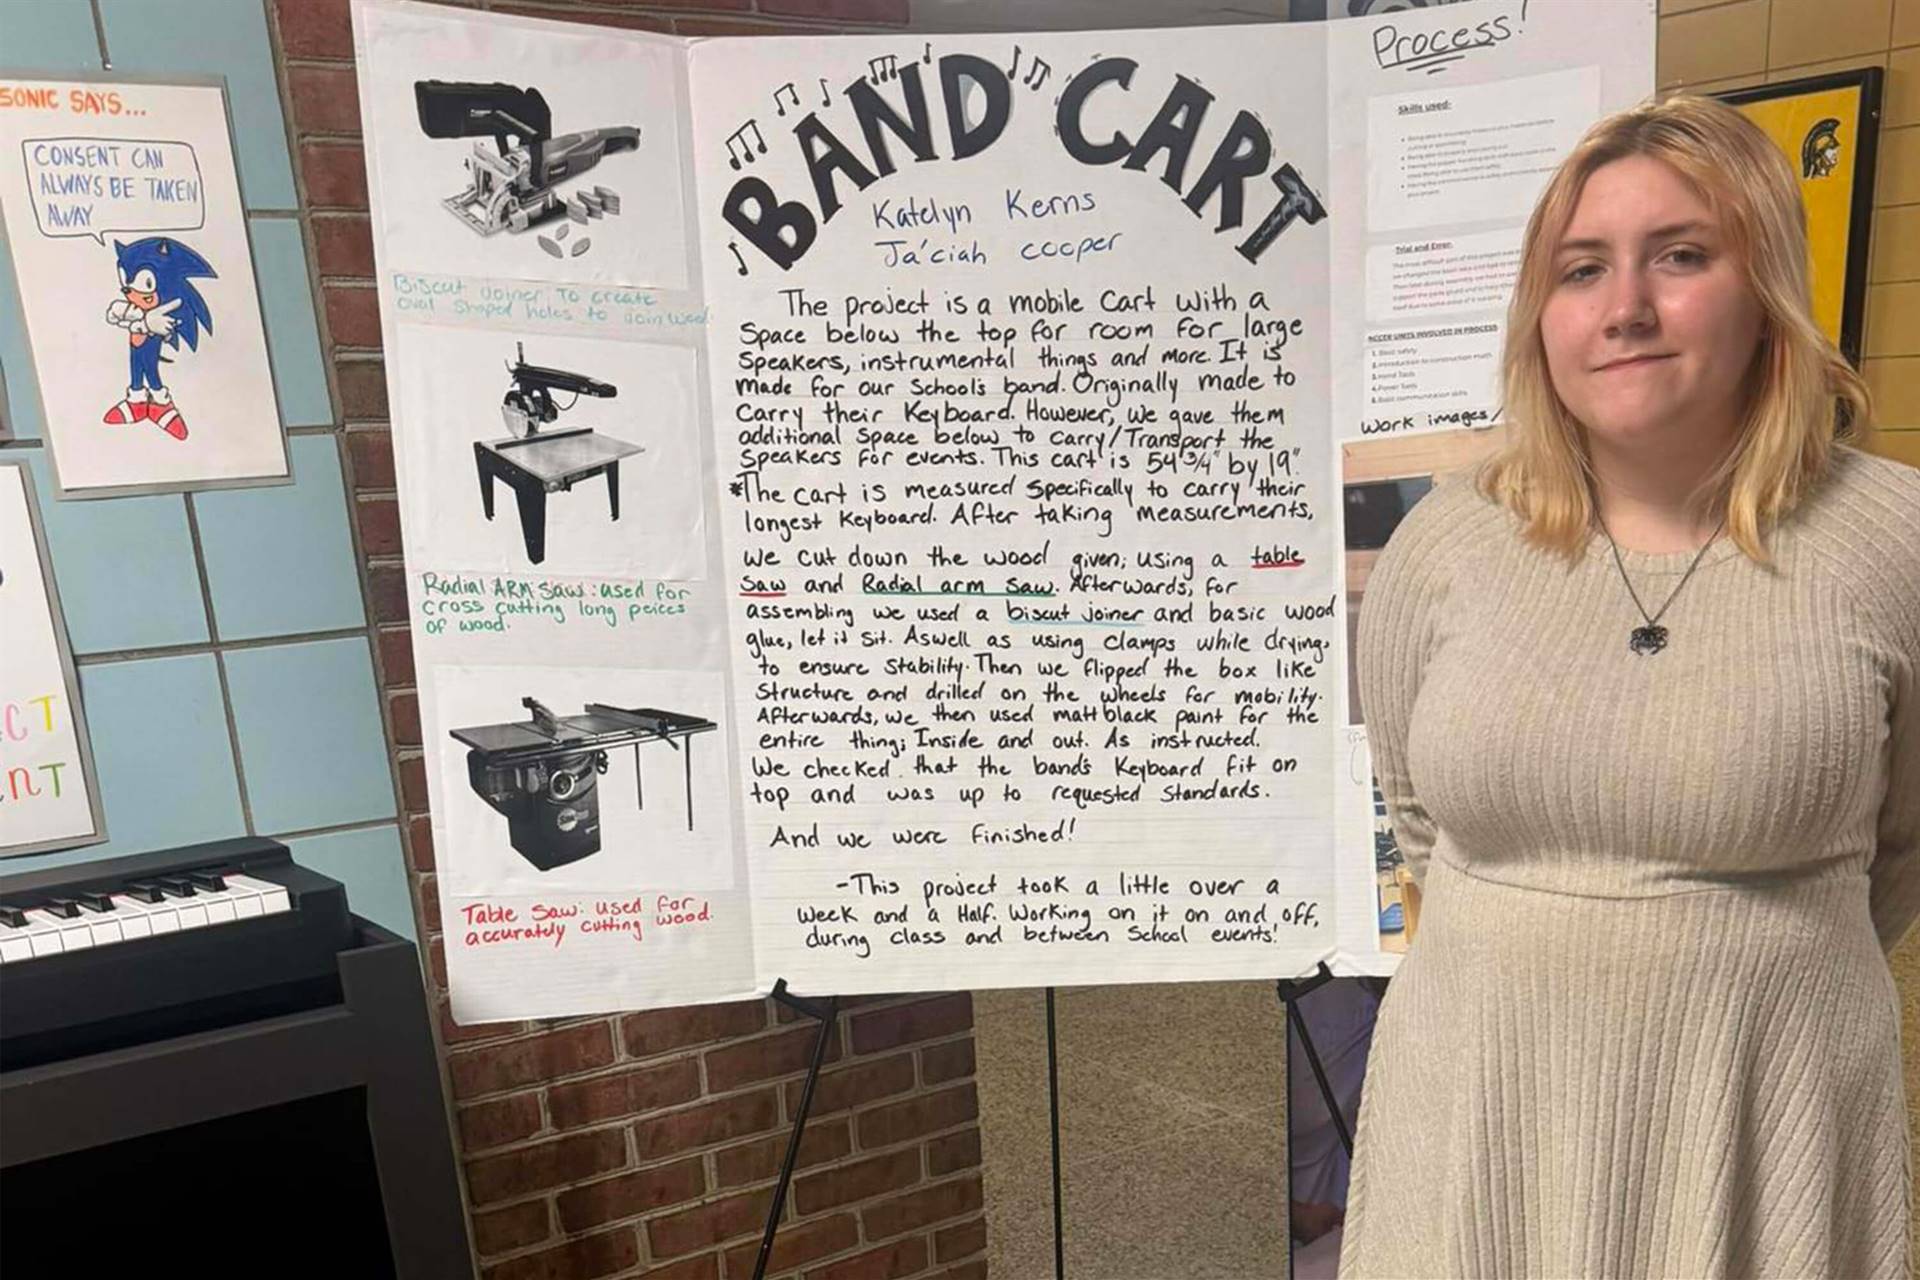 SONIC SAYS...
CONSENT CAN
ALWAYS BE TAKEN
AWAY
CT
ENT
Biscut Joiner: To create
oval shaped holes to join wood.
Radial ARM Saw: used for
cross cutting long peices
of wood.
Table Saw: used for
accurately cutting wood.
BAND CART
Katelyn Kerns
Ja'ciah cooper
The project is a mobile Cart with a
Space below the top for room for large
Speakers, instrumental things and more. It is
made for our School's band. Originally made to
Carry their Keyboard. However, we gave them
additional Space below to carry/Transport the
Speakers for events. This cart is 54 3/4" by 19".
*The cart is measured specifically to carry their
longest Keyboard. After taking measurements,
we cut down the wood given; using a table
saw and Radial arm saw. Afterwards, for
assembling we used a biscut joiner and basic wood
glue, let it sit. Aswell as using clamps while drying,
to ensure stability. Then we flipped the box like
Structure and drilled on the wheels for mobility.
Afterwards, we then used matt black paint for the
entire thing; Inside and out. As instructed.
We checked that the band's Keyboard fit on
top and was up to requested standards.
And we were finished!
-This project took a little over a
week and a Half. Working on it on and off,
during class and between School events!
Process!
Skills used:
Trial and Error:
NCCER UNITS INVOLVED IN PROCESS
1. Basic safety
2. Introduction to construction math
3. Hand Tools
4. Power Tools
5. Basic communication skills
Work images/